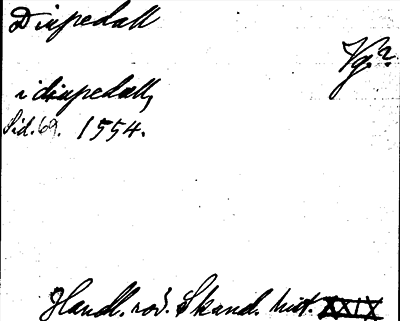 Diupedall
Vg.?
i diupedall,
Sid. 69. 1554.
Handl. rör. Skand. hist. XXIX